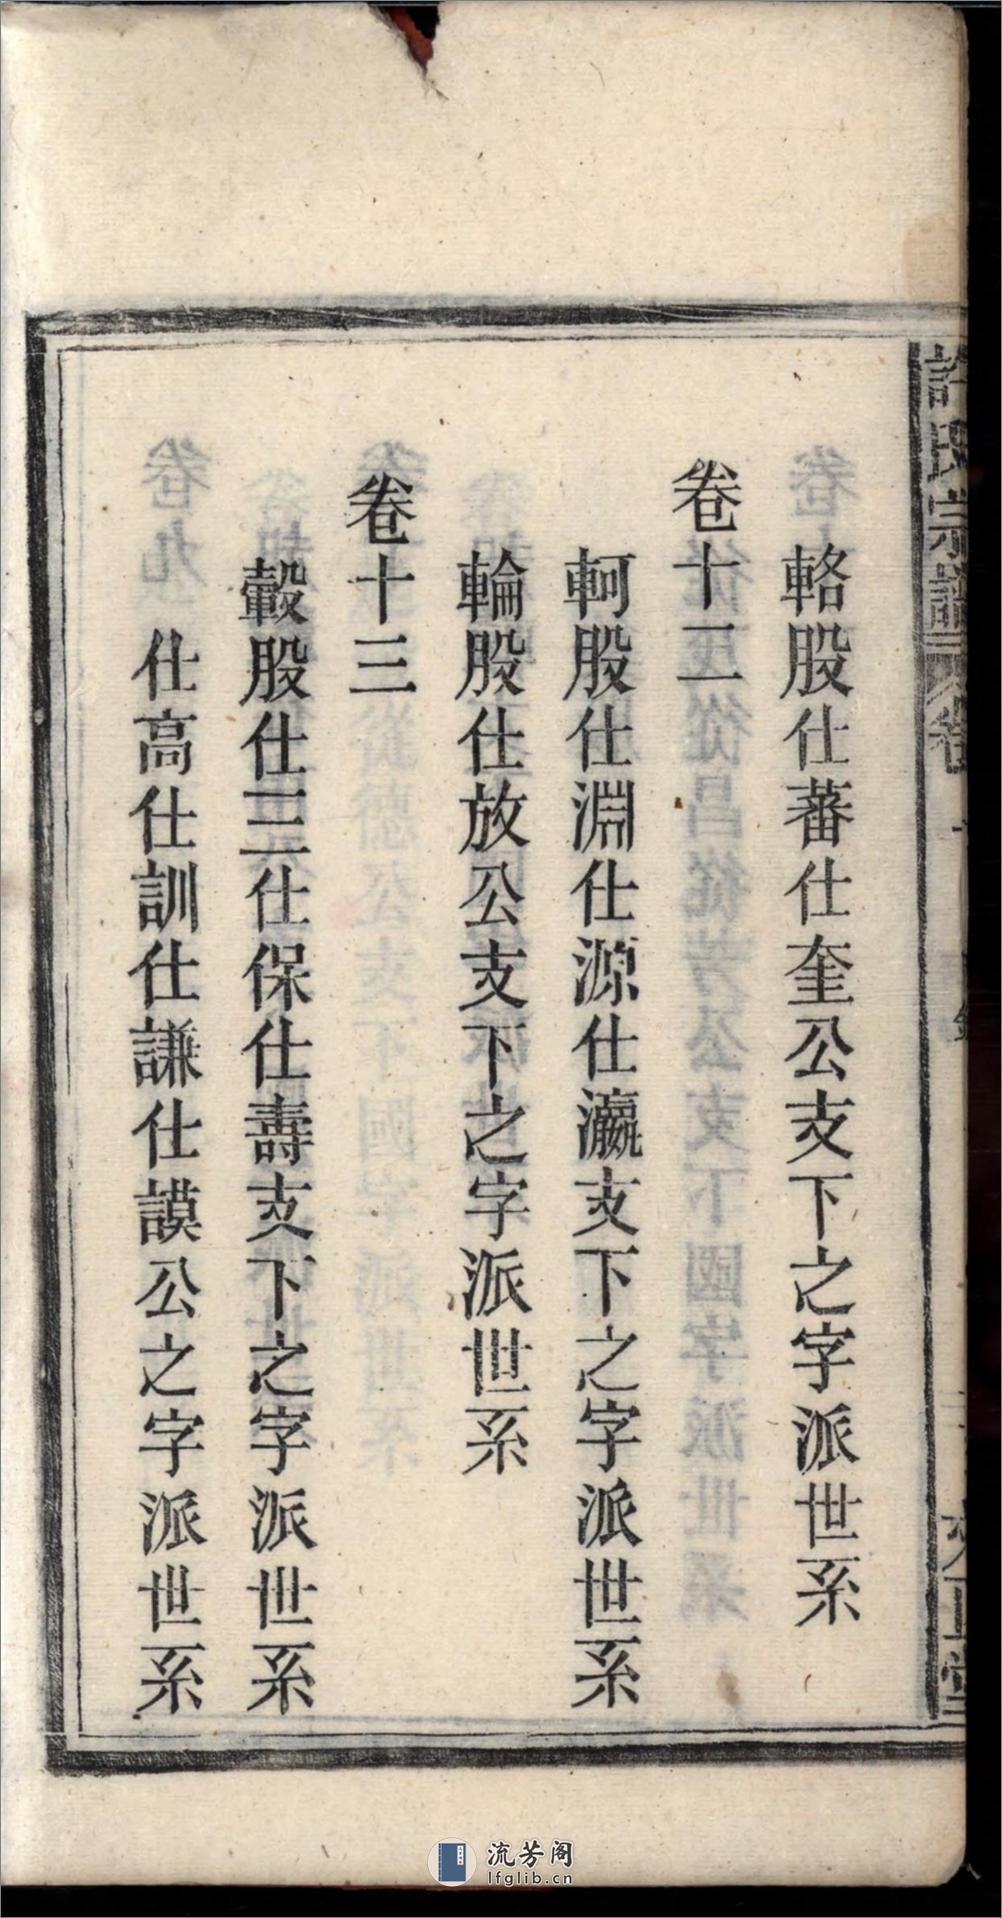 輅股仕蕃仕奎公支下之字派世系
卷十二
軻股仕淵仕源仕瀛支下之字派世系
輪股仕放公支下之字派世系
卷十三
轂股仕三仕保仕壽支下之字派世系
仕高仕訓仕謙仕謨公之字派世系
氏宗譜
流芳阁
lfglib.cn